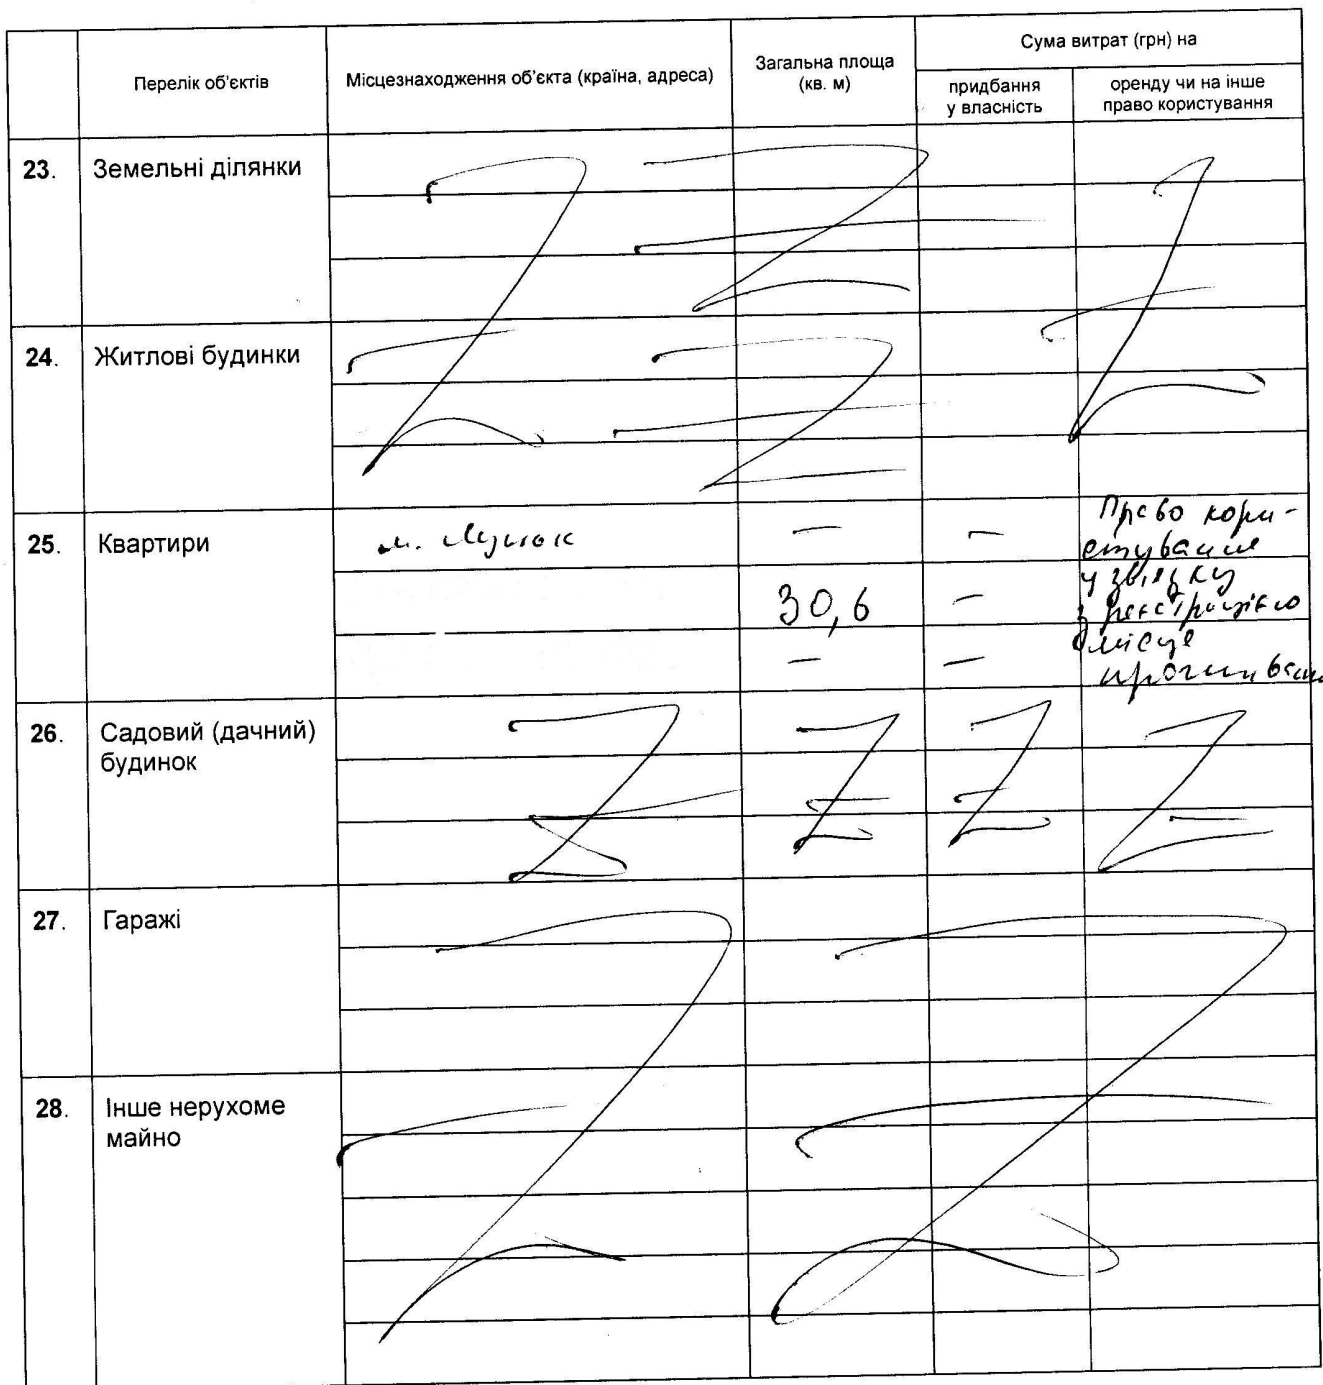 Сума витрат (грн) на
Перелік об'єктів
Місцезнаходження об'єкта (країна, адреса)
Загальна площа
(кв. м)
придбання
у власність
оренду чи на інше
право користування
23. Земельні ділянки
24. Житлові будинки
25. Квартири
м. Луцьк
—
—
Право кори-
стування
у зв'язку
з реєстрацією
місця
проживан
30,6
—
—
—
26. Садовий (дачний)
будинок
27. Гаражі
28. Інше нерухоме
майно